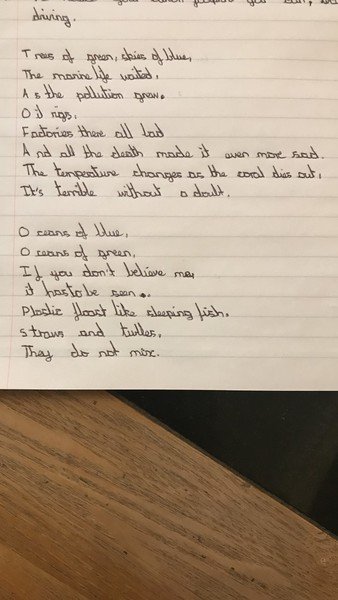 you can,
driving.
Trees of green, skies of blue,
The marine life waited,
As the pollution grew.
Oil rigs,
Factories there all bad
And all the death made it even more sad.
The temperature changes as the coral dies out,
It's terrible without a doubt.
Oceans of blue,
Oceans of green,
If you don't believe me,
it has to be seen..
Plastic float like sleeping fish,
straws and turtles,
They do not mix.